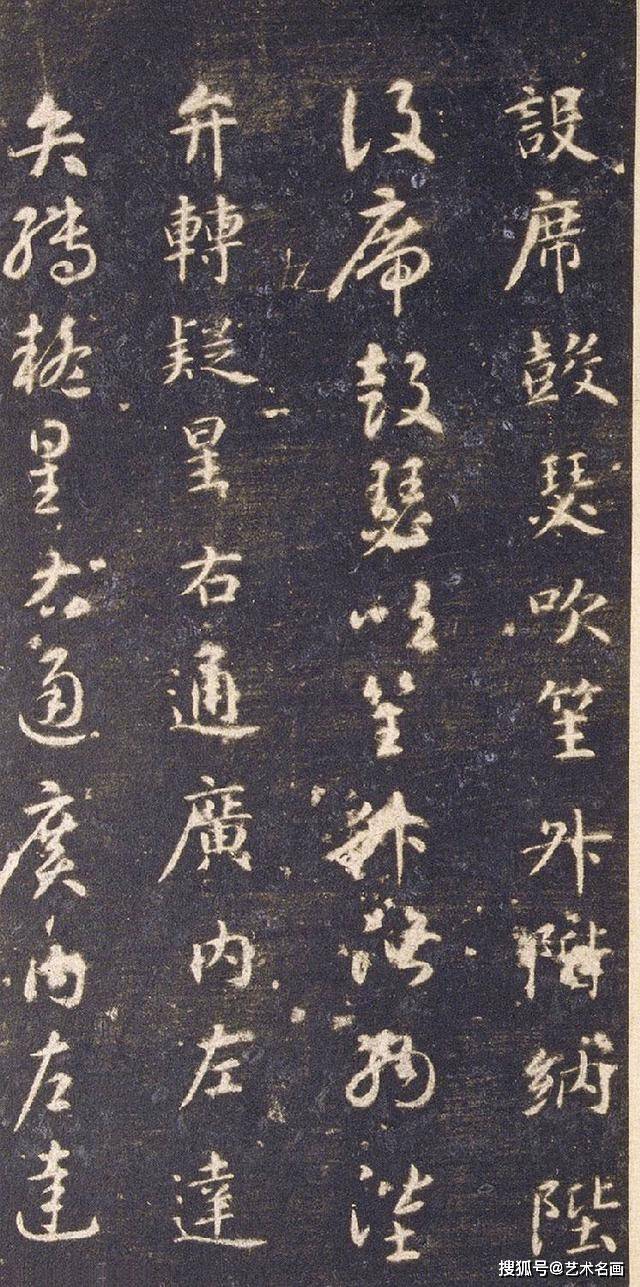 設席鼓瑟吹笙升階納陛
設席鼓瑟吹笙升階納陛
弁轉疑星右通廣内左達
弁轉疑星右通廣内左達
搜狐号@艺术名画